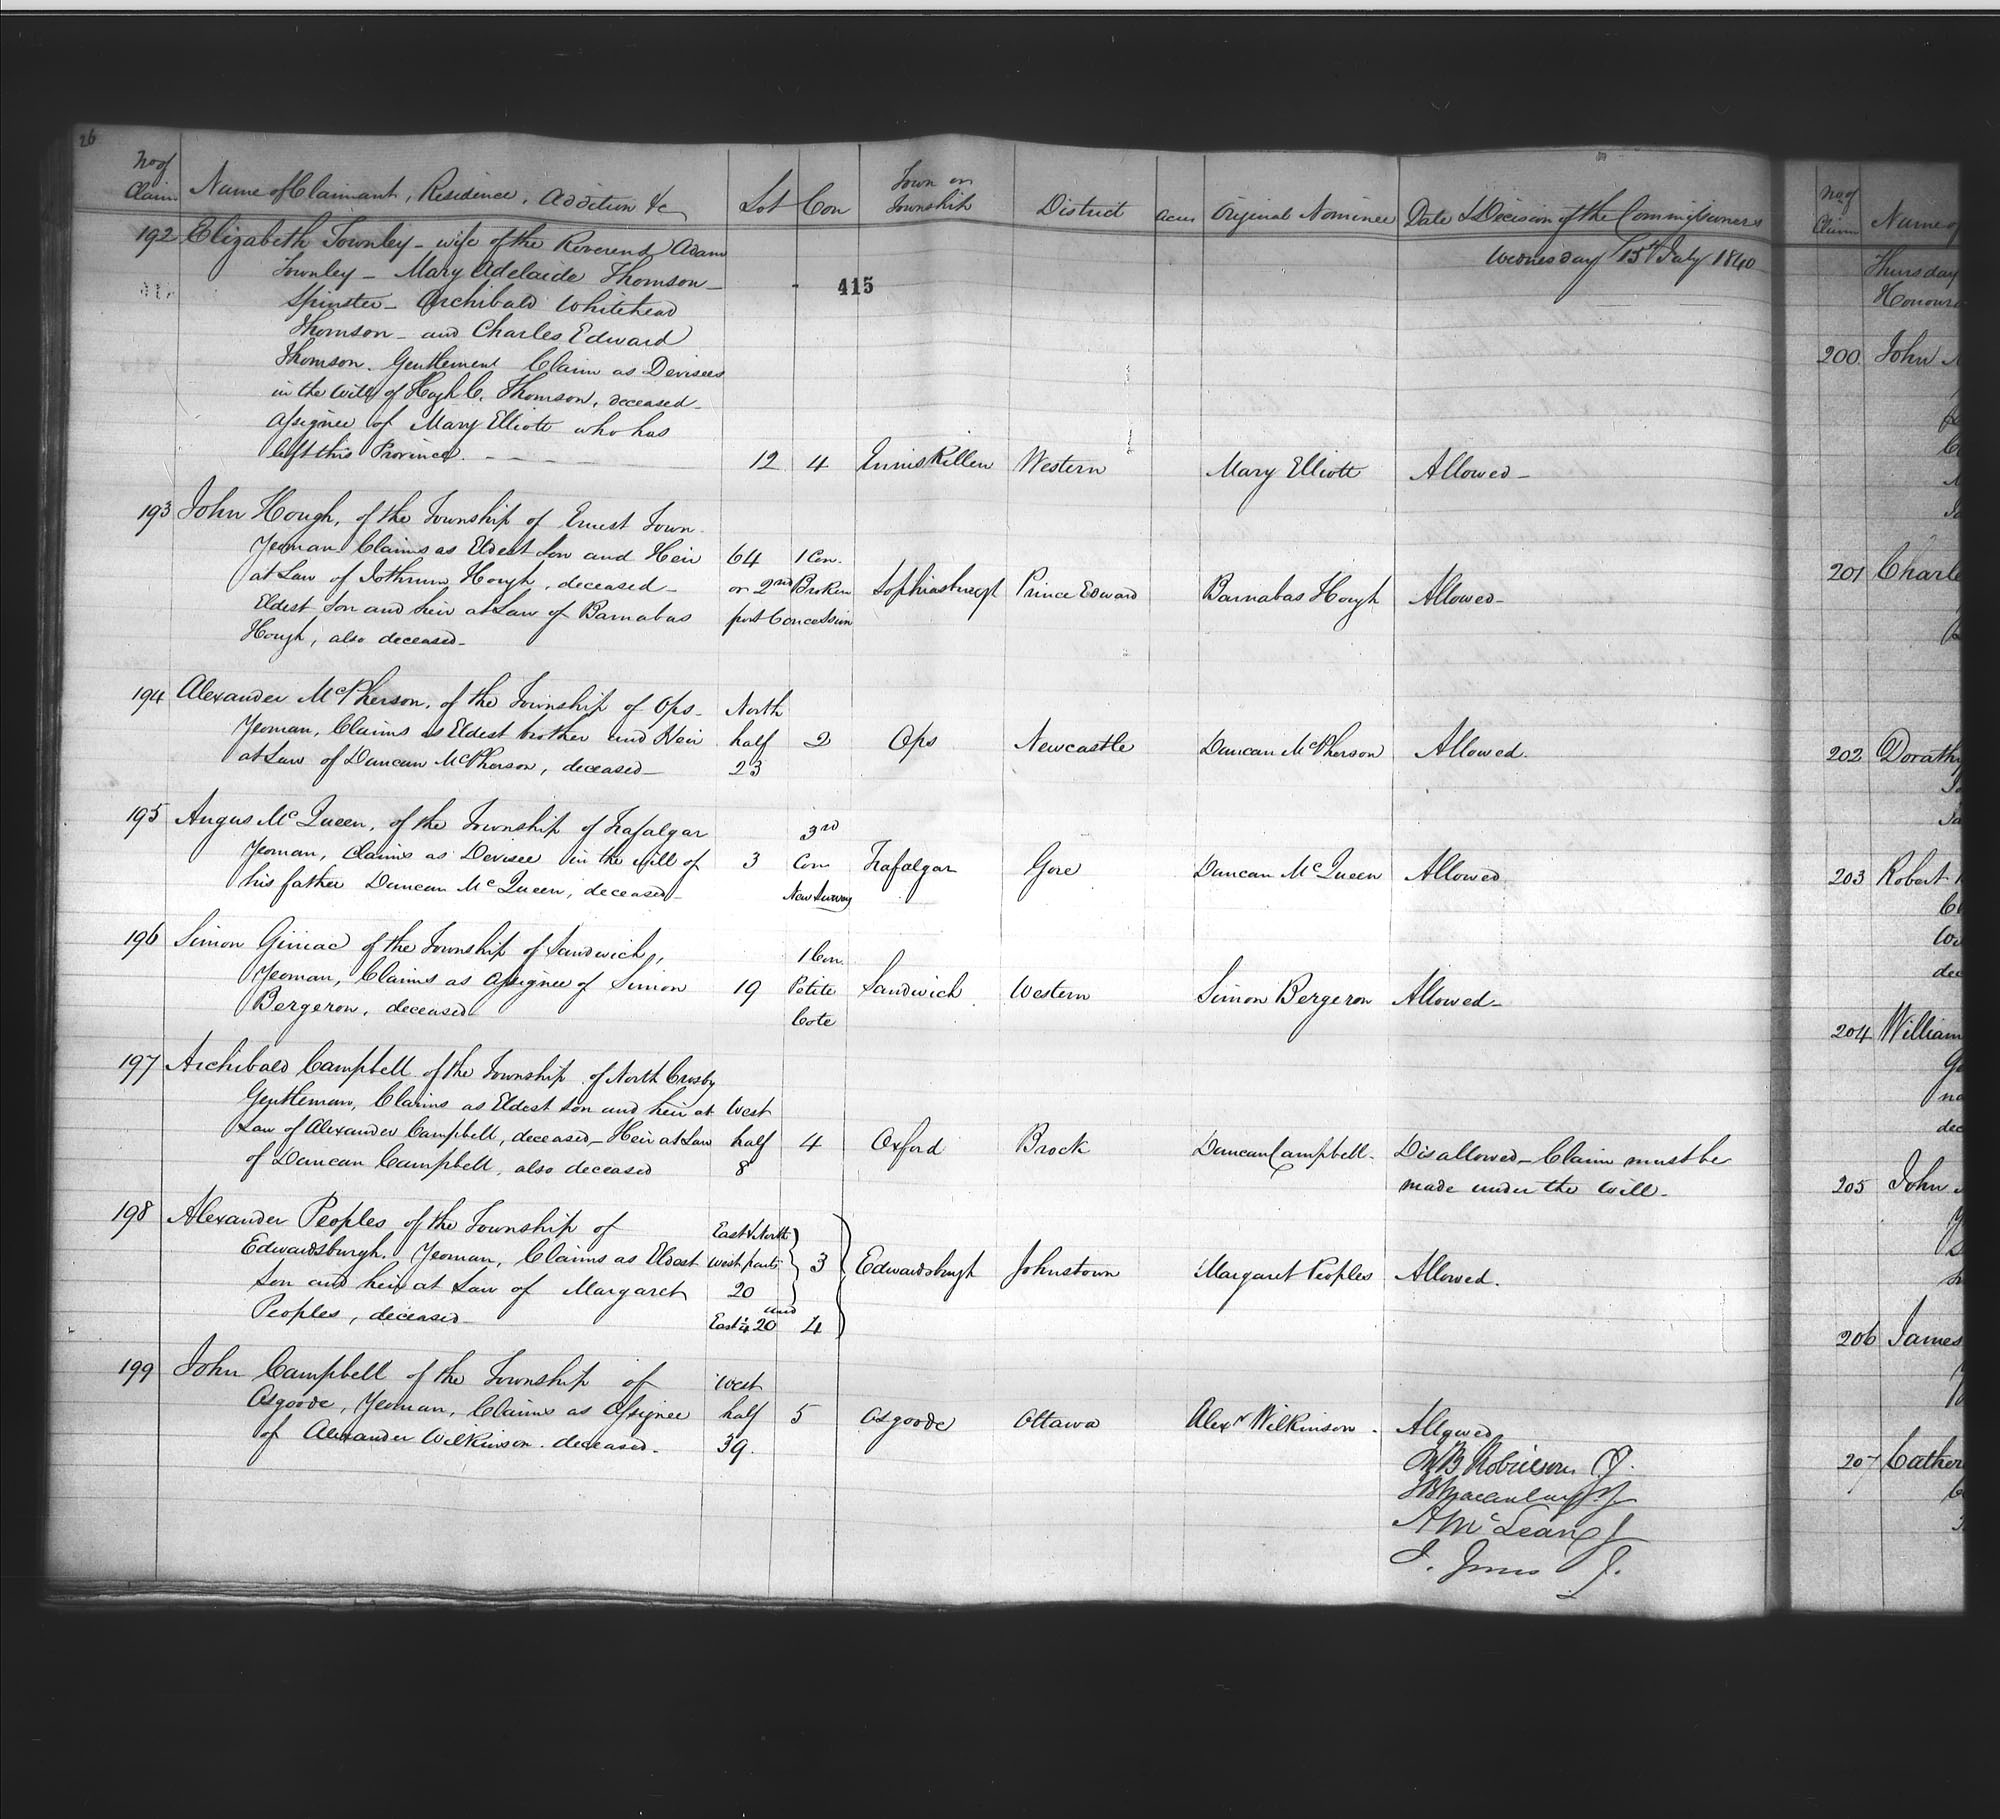 26
No of Claim Name of Claimant, Residence, Addition &c Lot Con Town or Township District Acres Original Nominee Date & Decision of the Commissioners
Wednesday 15th July 1840
415
192 Elizabeth Townley - wife of the Reverend Adam
Townley - Mary Adelaide Thomson -
Spinster - Archibald Whitehead
Thomson - and Charles Edward
Thomson. Gentlemen Claim as Devisees
in the Will of Hugh C. Thomson, deceased -
Assignee of Mary Elliott who has
left this Province. 12 4 Enniskillen Western Mary Elliott Allowed -
193 John Hough, of the Township of Ernest Town
Yeoman Claims as Eldest Son and Heir 64 1 Con.
at Law of deceased - or 2nd Broken Sophiasburgh Prince Edward Barnabas Hough Allowed -
Eldest Son and heir at Law of Barnabas part Concession
Hough, also deceased -
194 Alexander McPherson, of the Township of Ops - North
Yeoman, Claims as Eldest brother and Heir half 2 Ops Newcastle Duncan McPherson Allowed.
at Law of Duncan McPherson, deceased - 23
195 Angus McQueen, of the Township of Trafalgar 3rd
Yeoman, Claims as Devisee in the will of 3 Con Trafalgar Gore Duncan McQueen Allowed
his father Duncan McQueen, deceased - New Survey
196 Simon of the Township of Sandwich, 1 Con.
Yeoman, Claims as Assignee of Simon 19 Petite Sandwich Western Simon Bergeron Allowed -
Bergeron, deceased Cote
197 Archibald Campbell of the Township of North Crosby
Gentleman, Claims as Eldest son and heir at West
Law of Alexander Campbell, deceased - Heir at Law half 4 Oxford Brock Duncan Campbell - Disallowed - Claim must be
of Duncan Campbell, also deceased 8 made under the Will -
198 Alexander Peoples, of the Township of East & North
Edwardsburgh. Yeoman, Claims as Eldest west parts 3 Edwardsburgh Johnstown Margaret Peoples Allowed.
Son and heir at Law of Margaret 20
Peoples, deceased - and East ¼ 20 4
199 John Campbell of the Township of West
Osgoode, Yeoman, Claims as Assignee half 5 Osgoode Ottawa Alexr Wilkinson - Allowed
of Alexander Wilkinson. deceased - 39.
JB Robinson CJ.
JB Macaulay J
A McLean J
J. Jones J.
No of Claim Name of
Thursday
200. John
201 Charle
202 Dorathy
203 Robert
204 William
dec
205 John
206 James
207 Cather